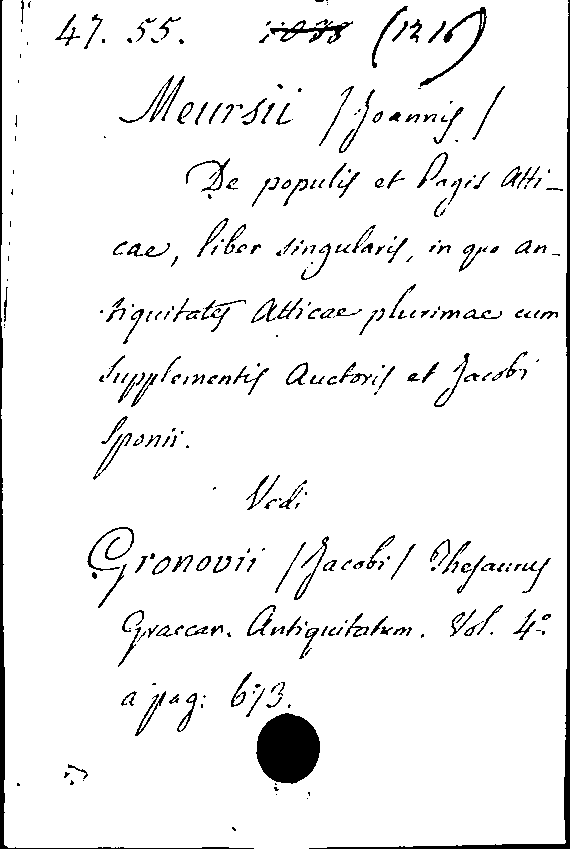 47. 55. (1216)
Meursii / Joannis /
De populis et Pagis Atti-
cae, liber singularis, in quo an-
tiquitates Atticae plurimae cum
supplementis Auctoris et Jacobi
Sponii.
Vedi
Gronovii / Jacobi / Thesaurus
Graecar. Antiquitatum. Vol. 4º.
a pag: 673.